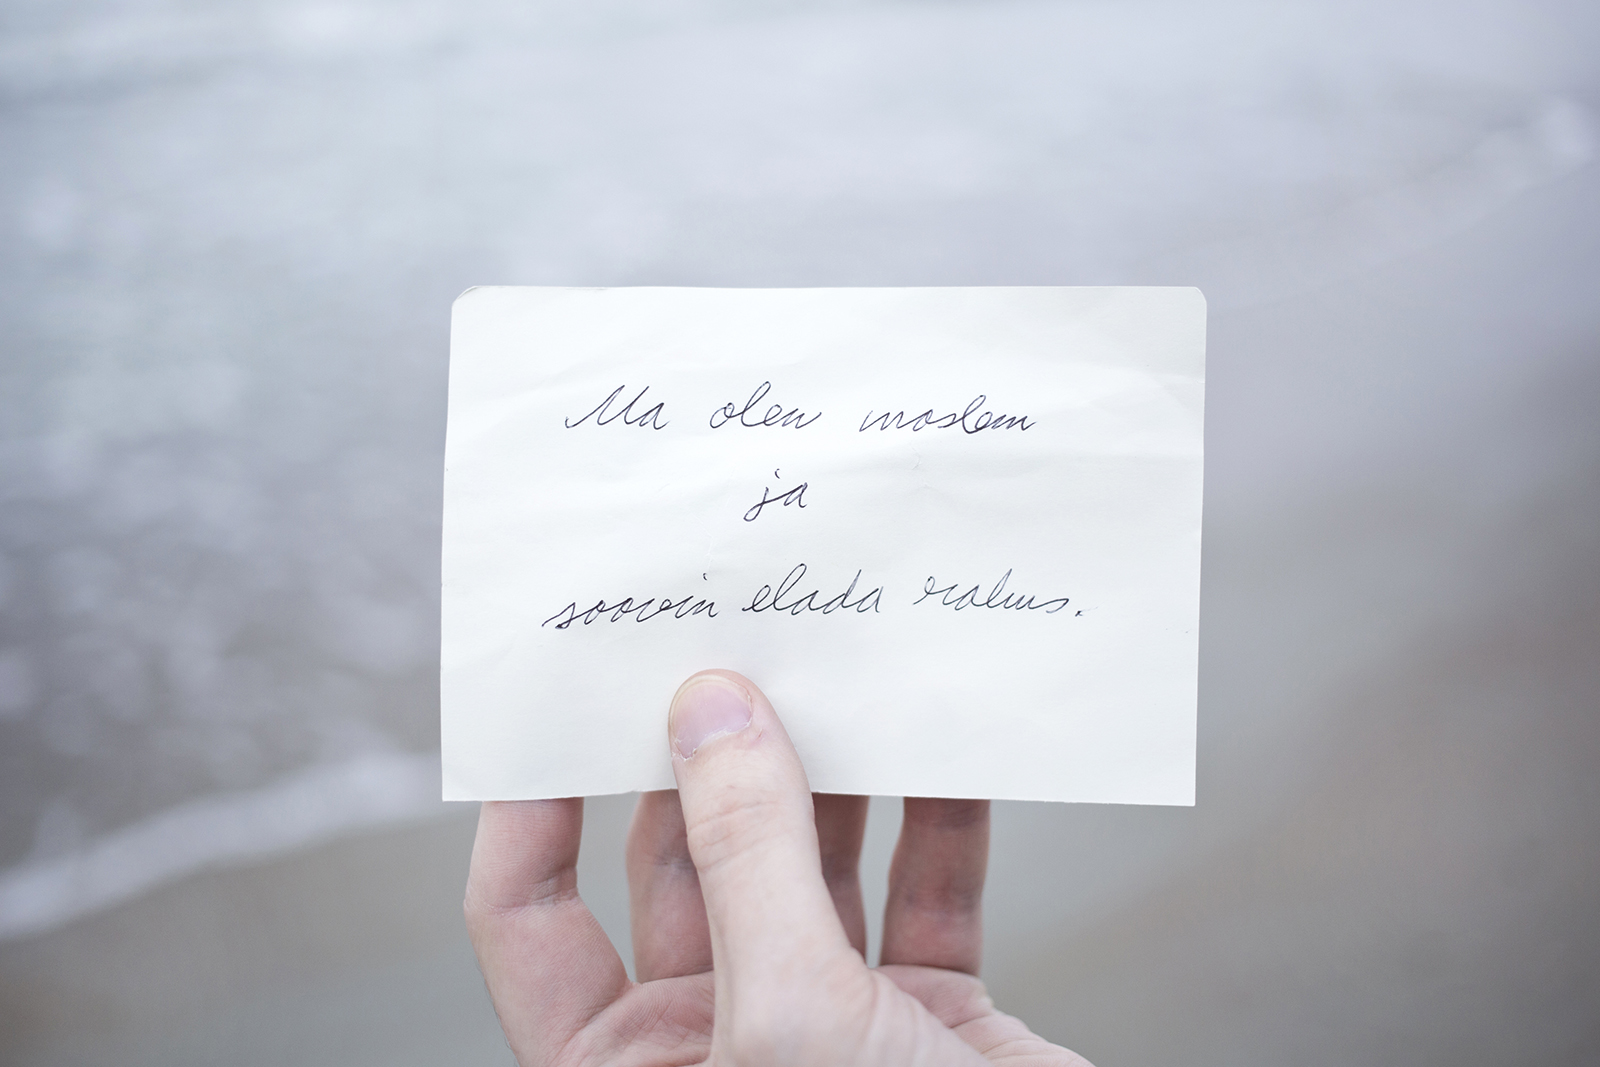 Ma olen moslem
ja
soovin elada rahus.